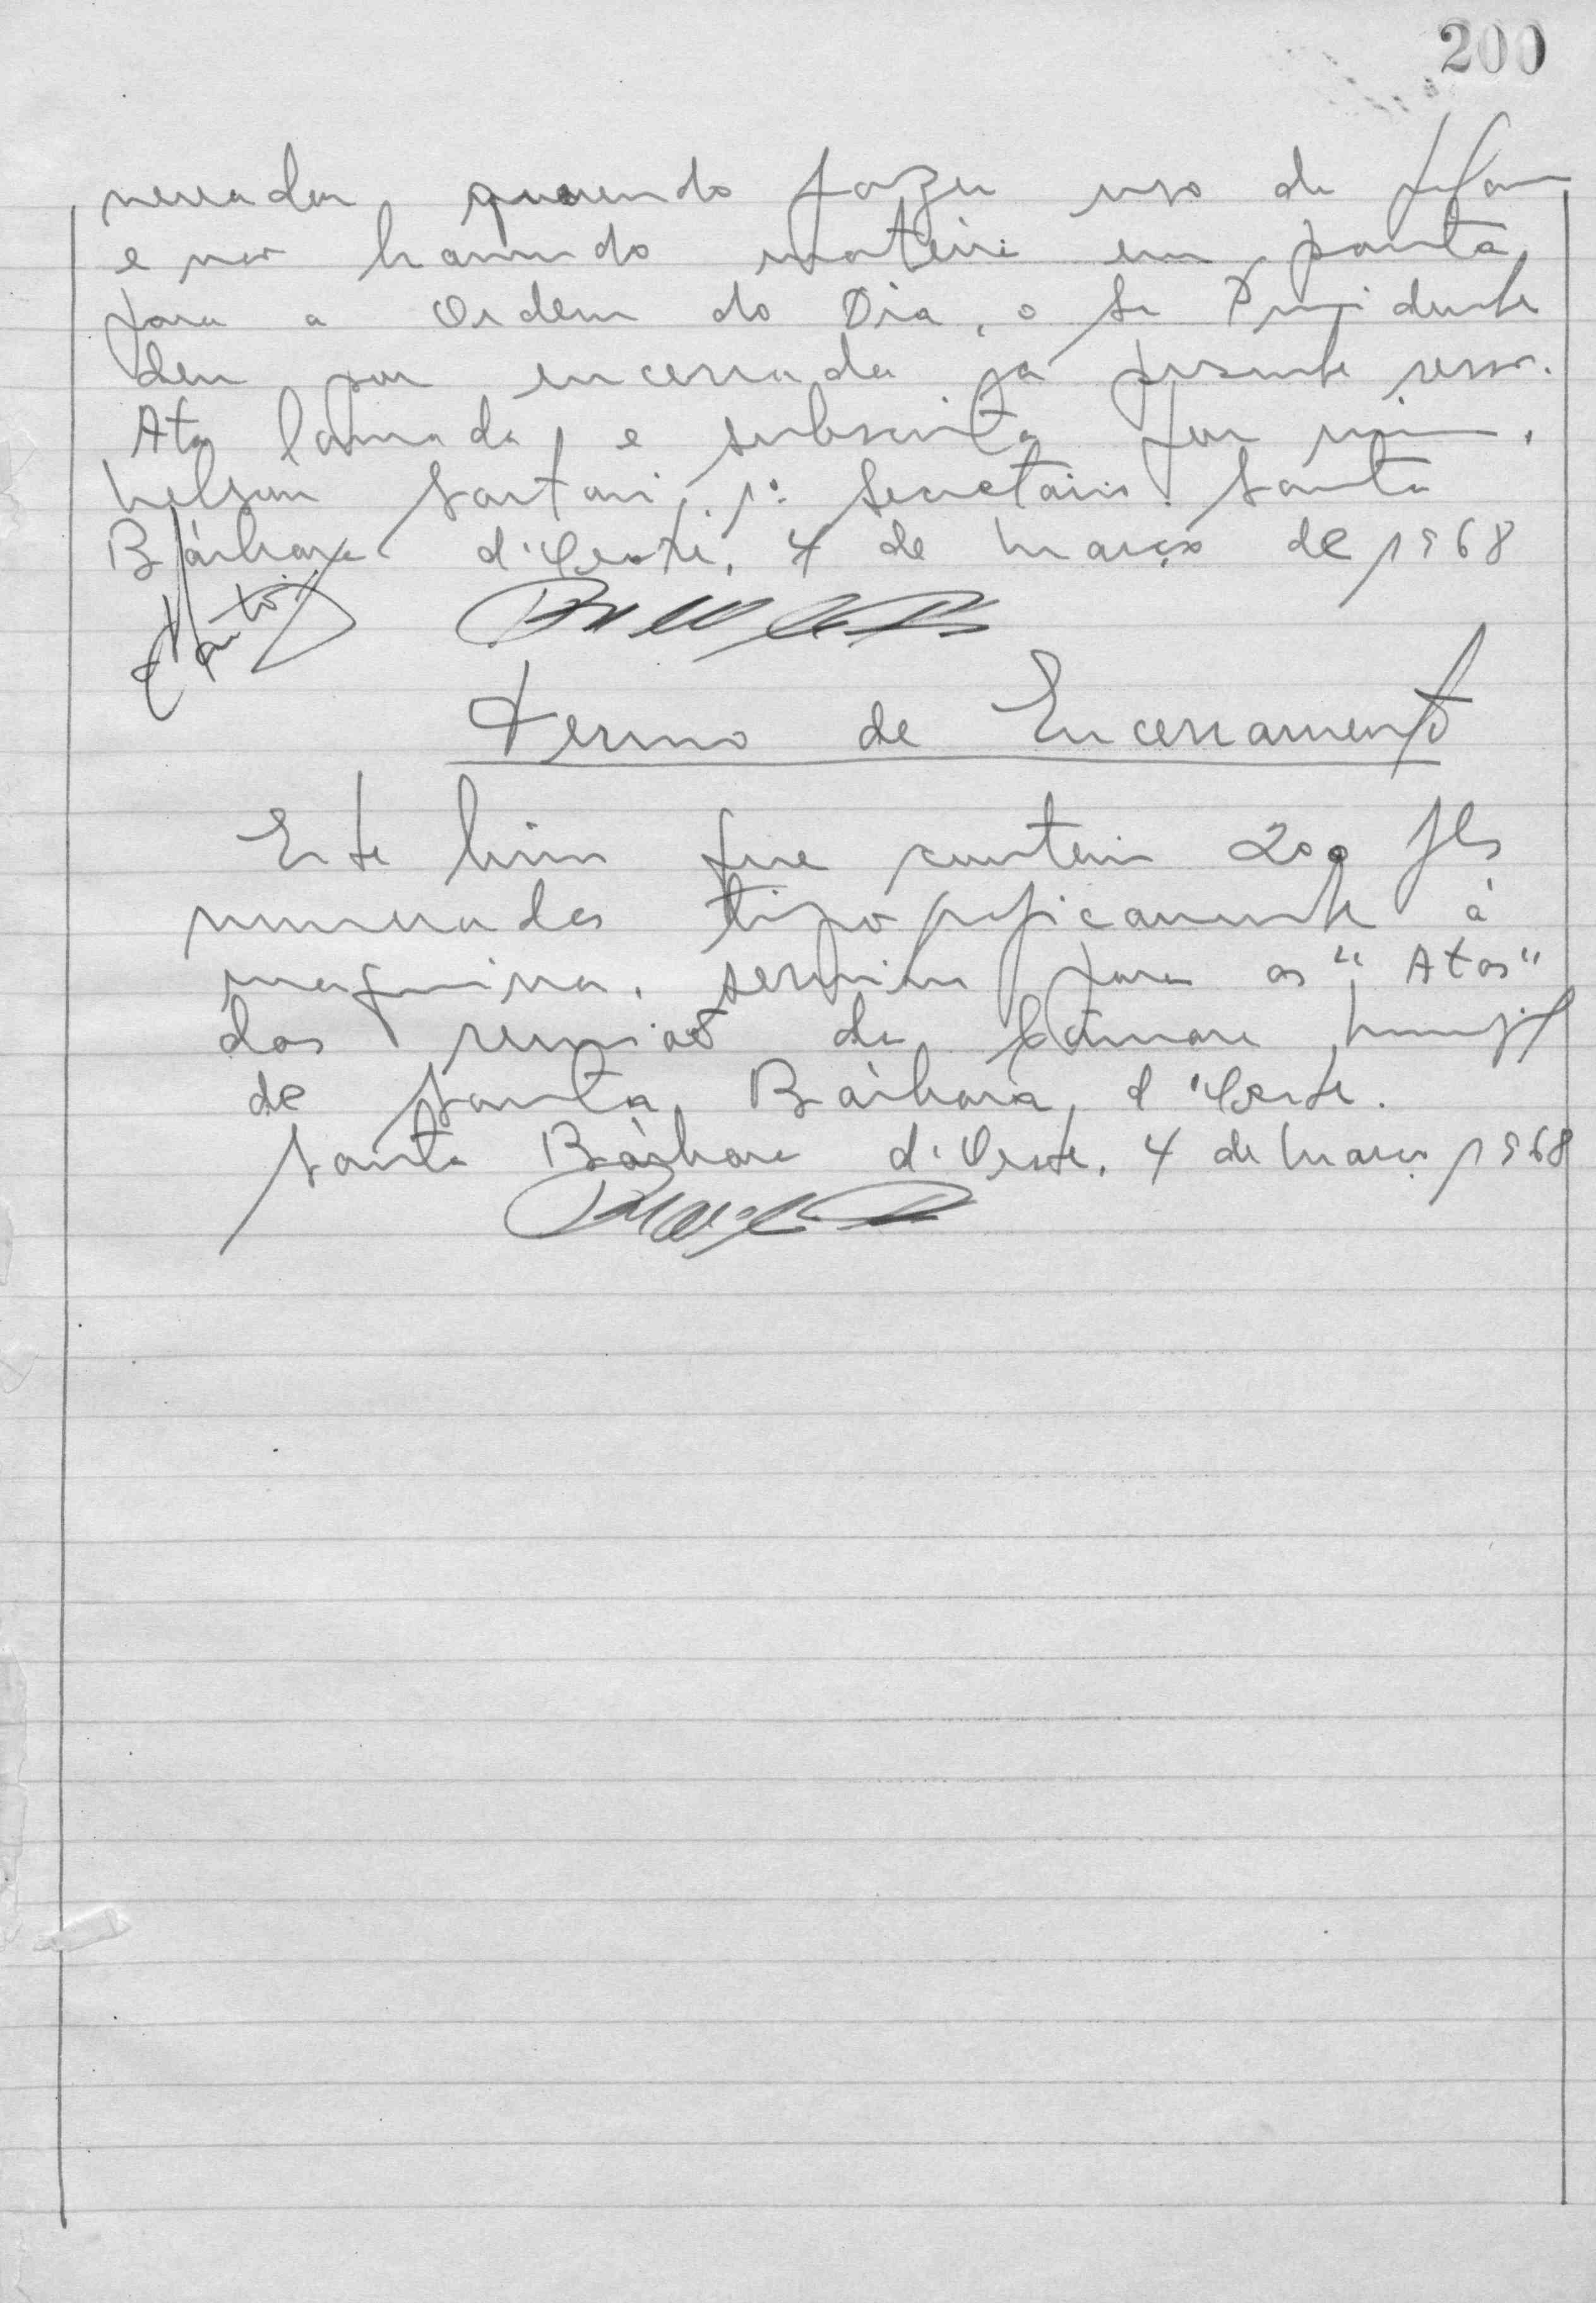 200
vereador querendo fazer uso da palavra
e não havendo matéria em pauta
para a Ordem do Dia, o Sr Presidente
deu por encerrada a presente sessão.
Ata lavrada e subscrita por mim,
Nelson Sartori, 1º Secretário. Santa
Bárbara d'Oeste, 4 de Março de 1968
Termo de Encerramento
Este livro que contem 200 fls
numeradas tipograficamente à
maquina, serviu para as "Atas"
das reuniões da Câmara Municipal
de Santa Bárbara d'Oeste.
Santa Bárbara d'Oeste, 4 de Março 1968